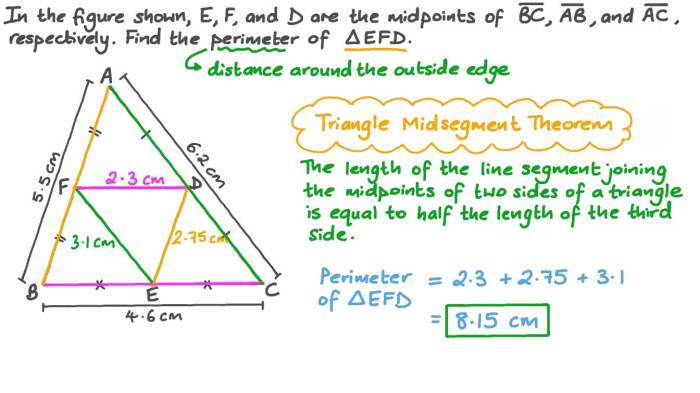 In the figure shown, E, F, and D are the midpoints of BC, AB, and AC,
respectively. Find the perimeter of △EFD.
distance around the outside edge
A
Triangle Midsegment Theorem
5.5 cm
6.2 cm
The length of the line segment joining
the midpoints of two sides of a triangle
is equal to half the length of the third
side.
F
2.3 cm
D
3.1 cm
2.75 cm
Perimeter of △EFD = 2.3 + 2.75 + 3.1
= 8.15 cm
B
E
C
4.6 cm